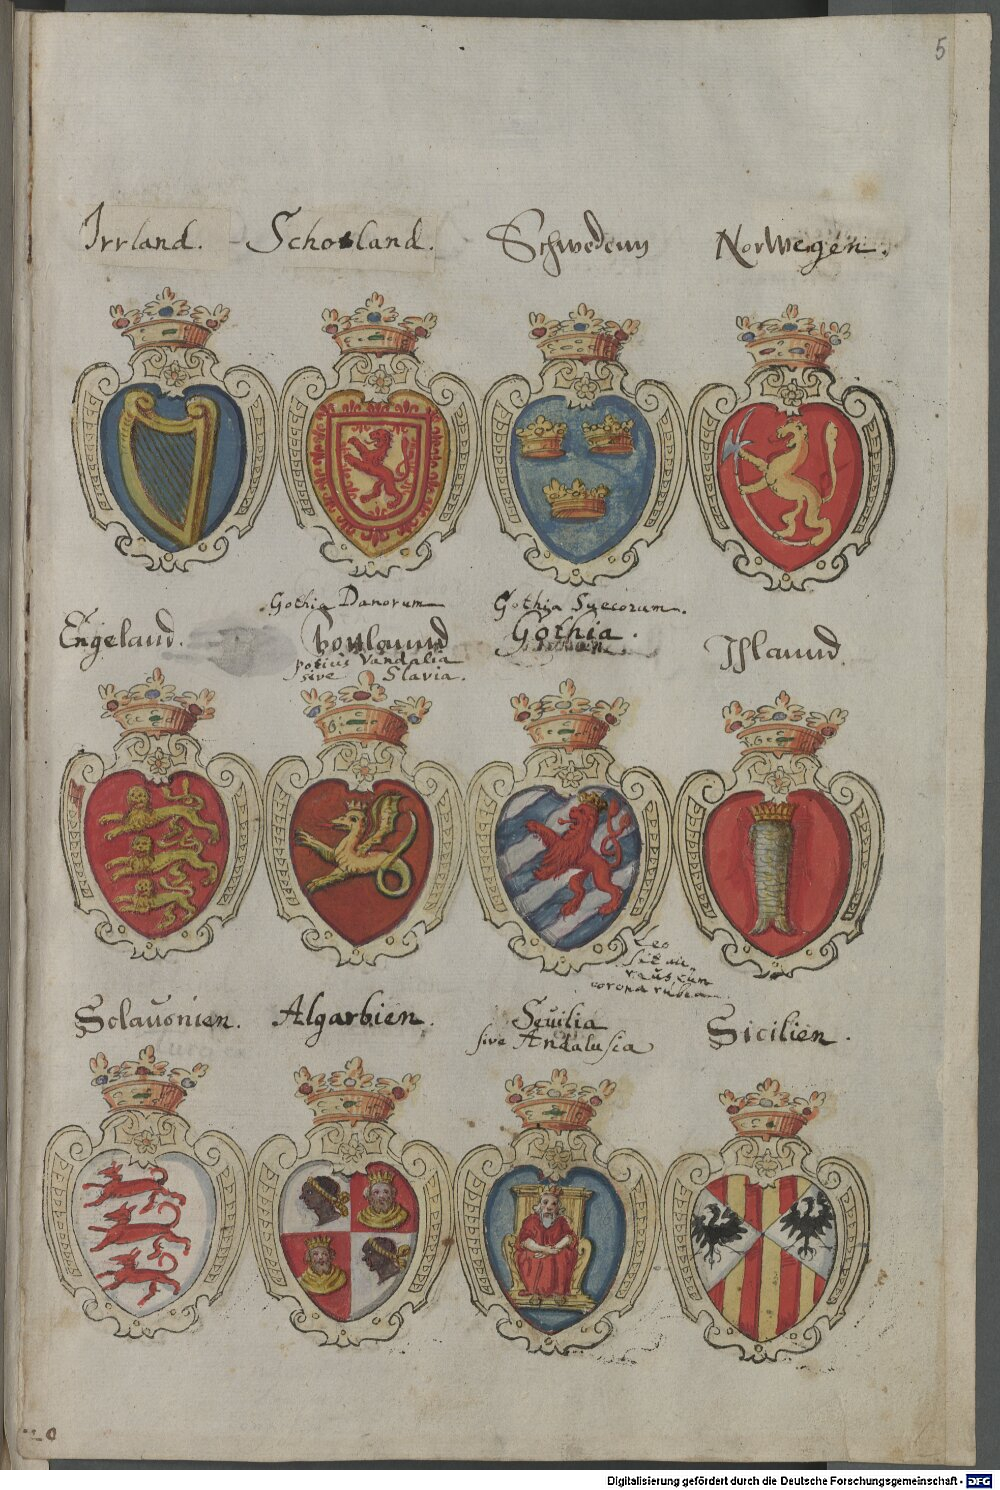 5
Irrland.
Schotland.
Schwedenn
Norwegen.
Engeland.
Gothia Danorum
potius Vandalia
sive Slavia.
Gothia Suecorum.
Gothia.
Islannd.
Leo
sit au
reus cũm
corona rubea
Sclauonien.
Algarbien.
Seuilia
sive Andalusia
Sicilien.
Digitalisierung gefördert durch die Deutsche Forschungsgemeinschaft - DFG